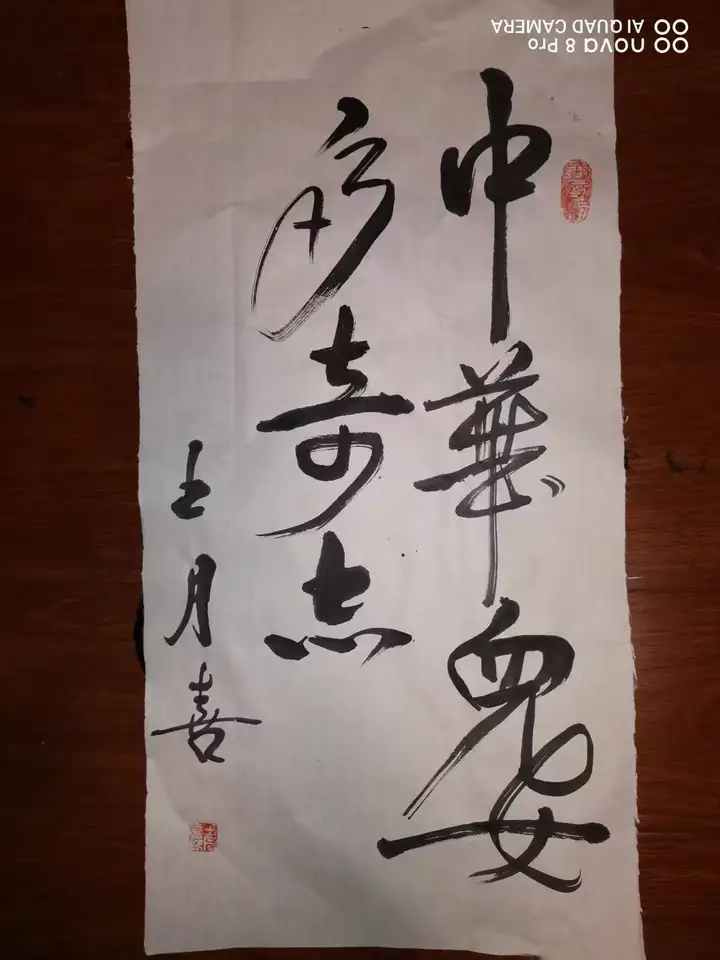 中華兒女
多奇志
王月喜
nova 8 Pro
AI QUAD CAMERA